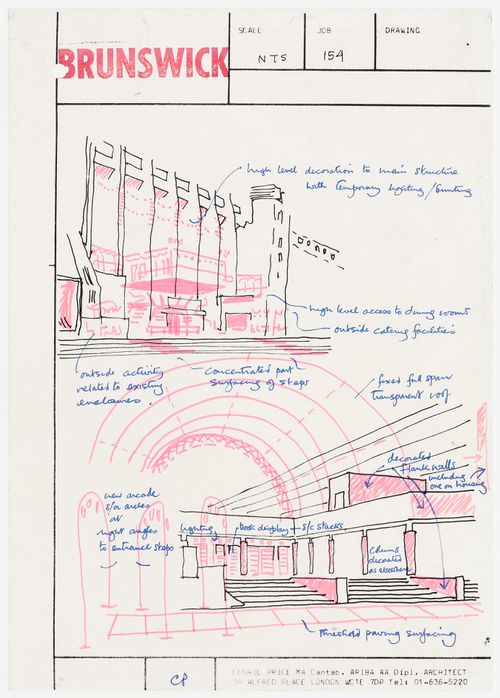 BRUNSWICK
SCALE
NTS
JOB
154
DRAWING
high level decoration to main structure
with temporary lighting / bunting
high level access to dining rooms
outside catering facilities
outside activity
related to existing
enclosures.
concentrated part
surfacing of steps
fixed full span
transparent roof
decorated
flank walls
including
one on housing
new arcade
&/or arches
at
right angles
to entrance steps
lighting
book display
S/C stacks
decorated
as elsewhere
threshold paving surfacing
CP
CEDRIC PRICE MA Cantab, ARIBA AA Dipl. ARCHITECT
38 ALFRED PLACE LONDON WC1E 7DP Tel: 01-636-5220